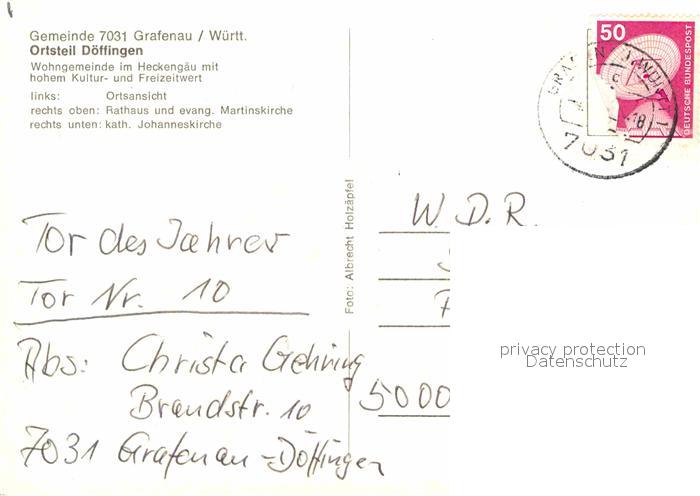 Gemeinde 7031 Grafenau / Württ.
Ortsteil Döffingen
Wohngemeinde im Heckengäu mit
hohem Kultur- und Freizeitwert
links: Ortsansicht
rechts oben: Rathaus und evang. Martinskirche
rechts unten: kath. Johanneskirche
50
DEUTSCHE BUNDESPOST
7031
Foto: Albrecht Holzäpfel
Tor des Jahres
Tor Nr. 10
Abs: Christa Gehring
Brandstr. 10
7031 Grafenau-Döffingen
W.D.R.
5000
privacy protection
Datenschutz